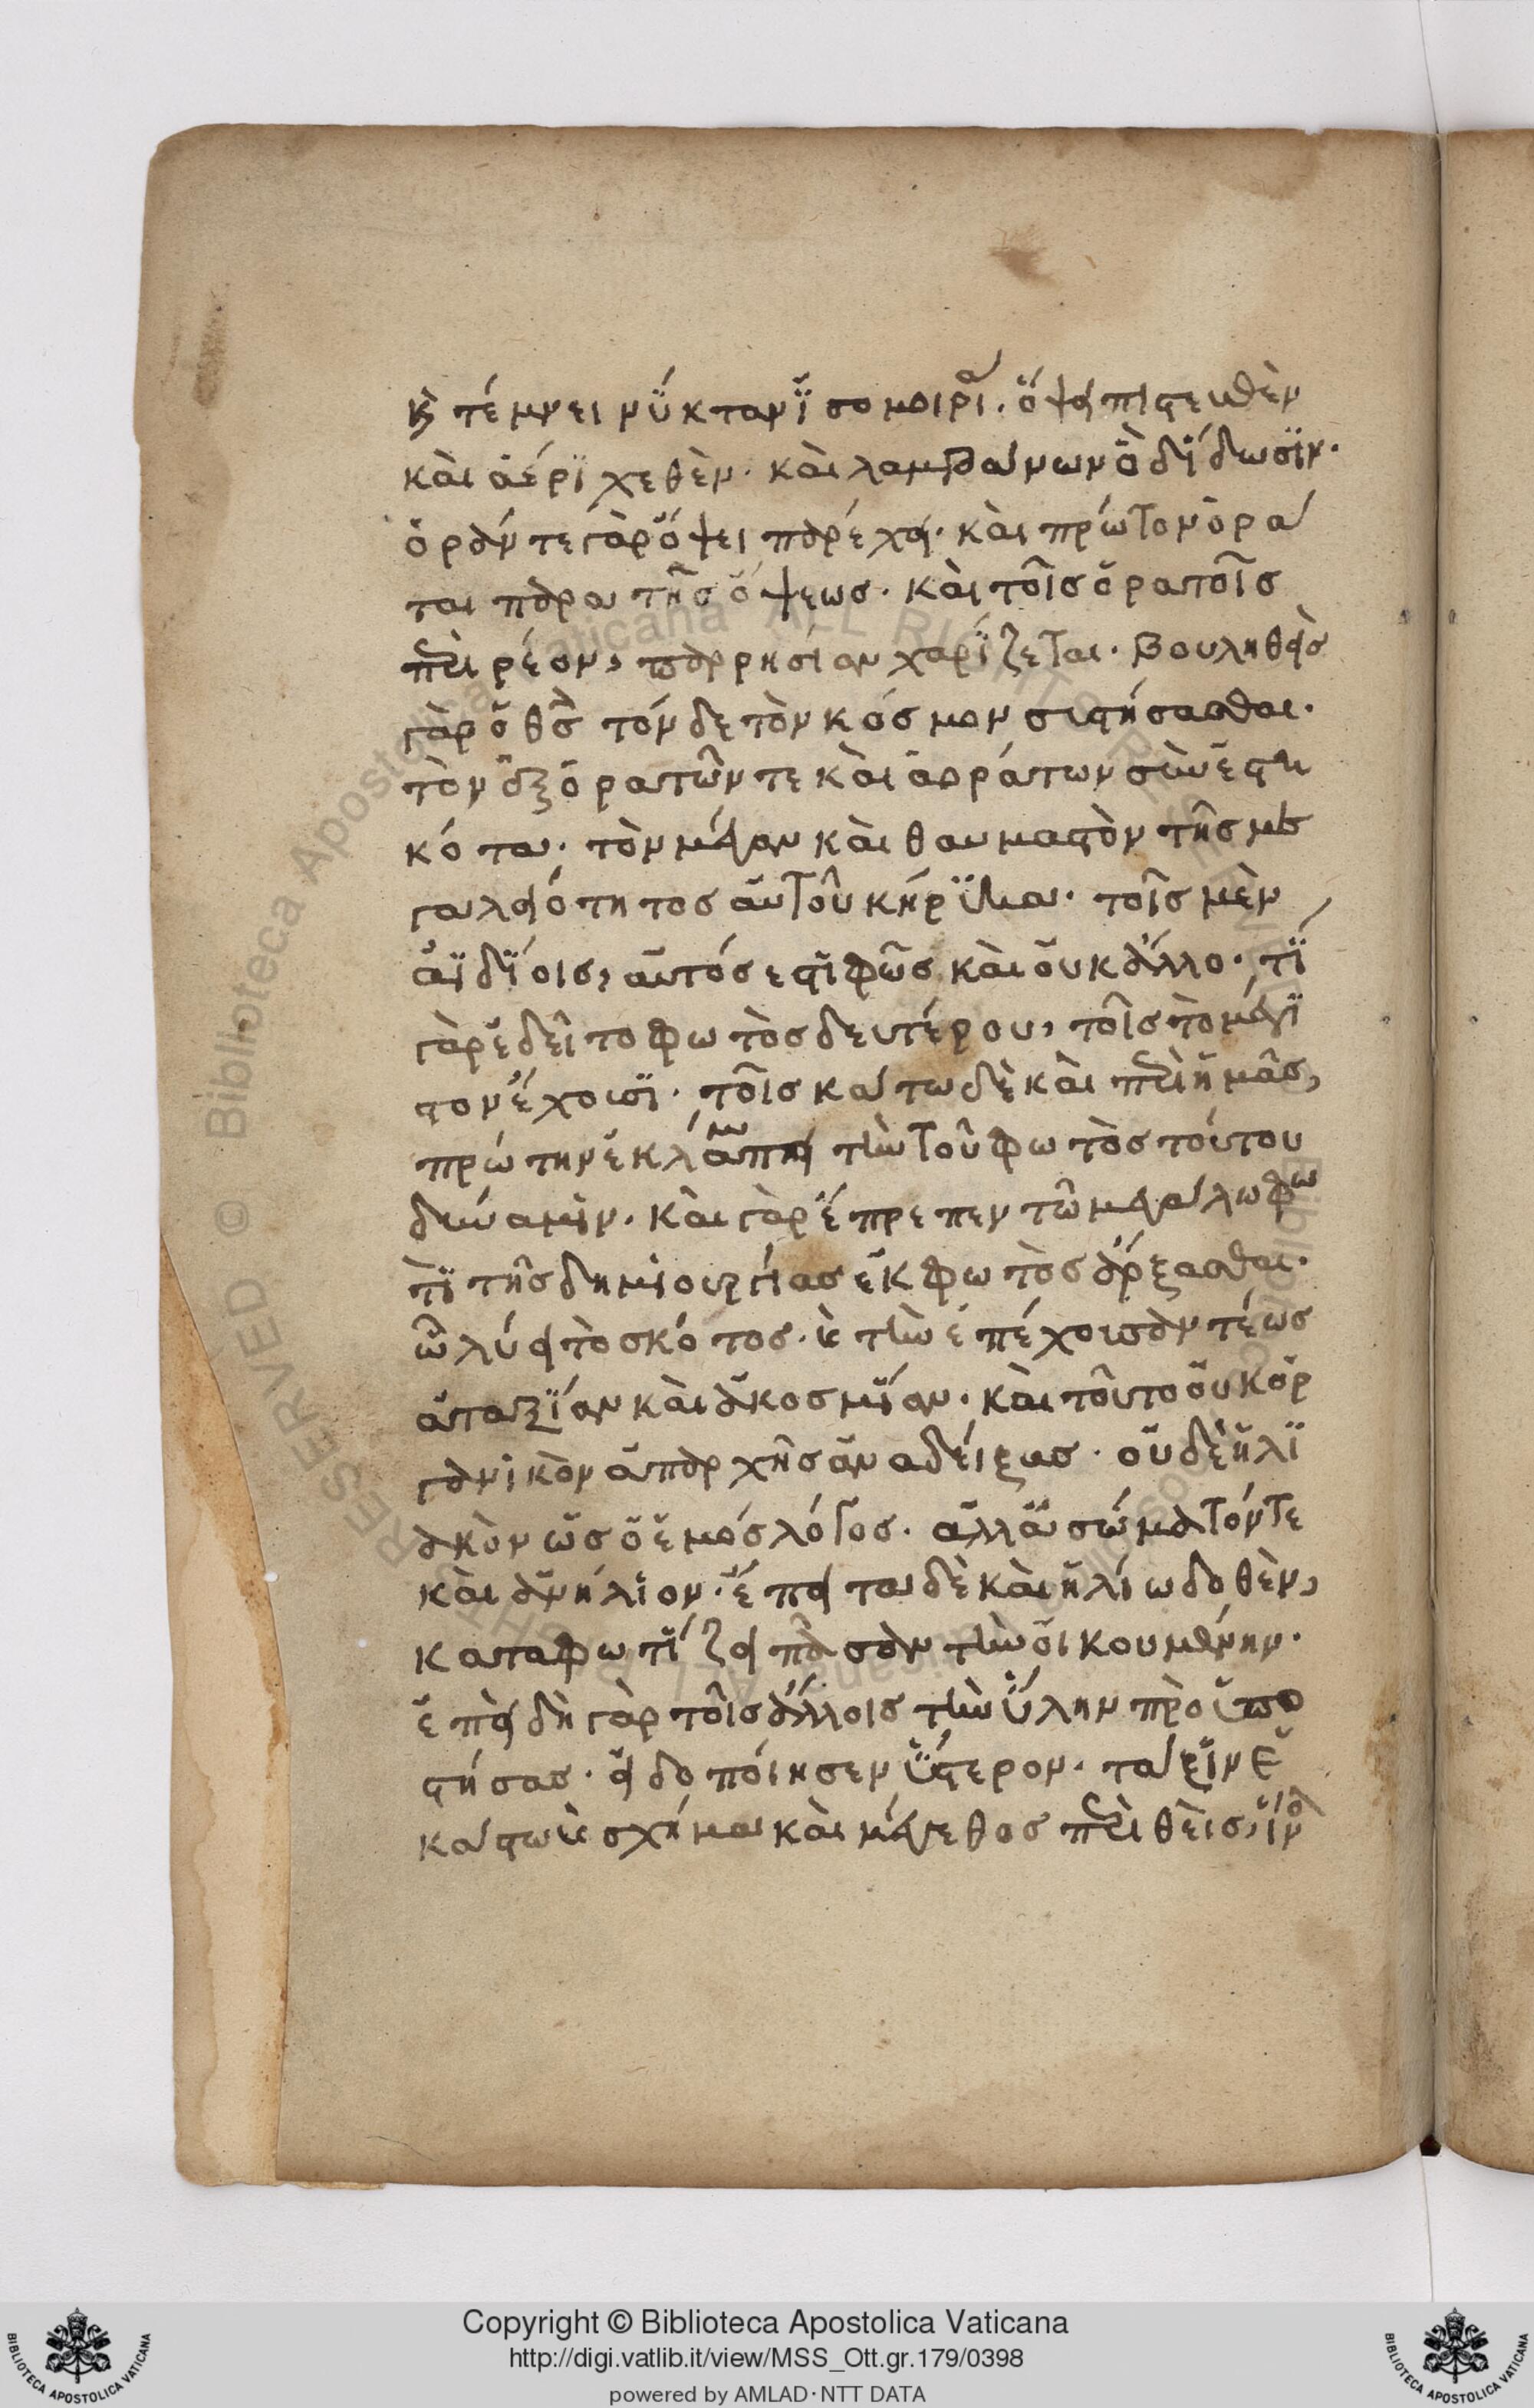 κ̀ τέμνει νύκτα ἰσομοιρία. ὄψει πιστευθὲν
καὶ ἀέρι χεθὲν. καὶ λαμβάνων ὃ δίδωσιν.
ὁρᾶν τε γὰρ ὄψει παρέχει. καὶ πρῶτον ὁρᾶ
ται παρα τῆς ὄψεως. καὶ τοῖς ὁρατοῖς
περιρέον, παρρησίαν χαρίζεται. Βουληθεὶς
γὰρ ὁ θς τόνδε τὸν κόσμον συστήσασθαι.
τὸν ἐξ ὁρατῶν τε καὶ ἀοράτων συνεστη
κότα. τὸν μέγαν καὶ θαυμαστὸν τῆς με
γαλειότητος αὐτοῦ κήρυκα. τοῖς μὲν
ἀϊδίοις, αὐτός εστι φῶς καὶ οὐκ ἄλλο. τί
γὰρ ἔδει το φωτὸς δευτέρου, τοῖς τὸ μέγι
στον ἔχουσι. τοῖς κάτω δὲ καὶ περὶ ἡμᾶς,
πρώτην ἐκλάμπει τὴν τοῦ φωτὸς τούτου
δύναμιν. καὶ γὰρ ἔπρεπεν τῶ μεγάλω φω
τὶ τῆς δημιουργίας ἐκ φωτὸς ἄρξασθαι.
ὧ λύει τὸ σκότος. κ̀ τὴν ἐπέχουσαν τέως
ἀταξίαν καὶ ἀκοσμίαν. καὶ τοῦτο οὐκ ὀρ
γανικὸν ἀπαρχῆς ἀναδείξας. οὐδὲ ἡλι
ακὸν ὡς ὁ ἐμὸς λόγος. ἀλλ' ἀσώματόν τε
καὶ ἀνήλιον. ἔπειτα δὲ καὶ ἡλίω δοθὲν,
καταφωτίζει πᾶσαν τὴν οἰκουμένην.
ἐπειδὴ γὰρ τοῖς ἄλλοις τὴν ὕλην προϋπο
στήσας. εἰδοποίησεν ὕστερον. τάξιν ἑ
κάστω κ̀ σχῆμα καὶ μέγεθος περιθεὶς,